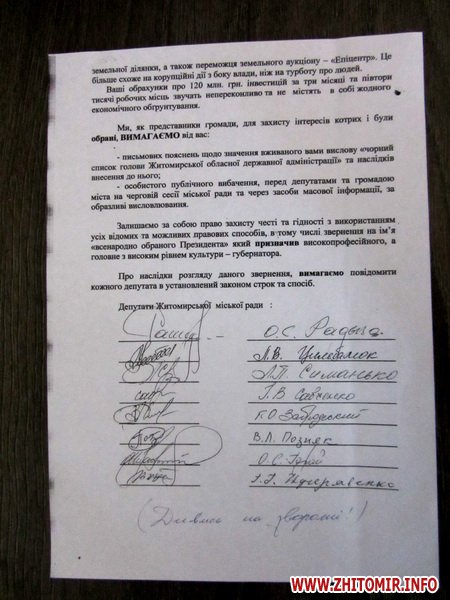 земельної ділянки, а також переможця земельного аукціону – «Епіцентр». Це
більше схоже на корупційні дії з боку влади, ніж на турботу про людей.
Ваші обрахунки про 120 млн. грн. інвестицій за три місяці та півтори
тисячі робочих місць звучать непереконливо та не містять в собі жодного
економічного обґрунтування.
Ми, як представники громади, для захисту інтересів котрих і були
обрані, ВИМАГАЄМО від вас:
- письмових пояснень щодо значення вживаного вами вислову «чорний
список голови Житомирської обласної державної адміністрації» та наслідків
внесення до нього;
- особистого публічного вибачення, перед депутатами та громадою
міста на черговій сесії міської ради та через засоби масової інформації, за
образливі висловлювання.
Залишаємо за собою право захисту честі та гідності з використанням
усіх відомих та можливих правових способів, в тому числі звернення на ім'я
«всенародно обраного Президента» який призначив високопрофесійного, а
головне з високим рівнем культури – губернатора.
Про наслідки розгляду даного звернення, вимагаємо повідомити
кожного депутата в установлений законом строк та спосіб.
Депутати Житомирської міської ради :
О.С. Радьно
Л.В. Цимбалюк
Л.П. Симанько
Г.В. Савченко
К.О. Забродський
В.Л. Позняк
О.С.
Г.Г.
(Дивись на звороті!)
WWW.ZHITOMIR.INFO